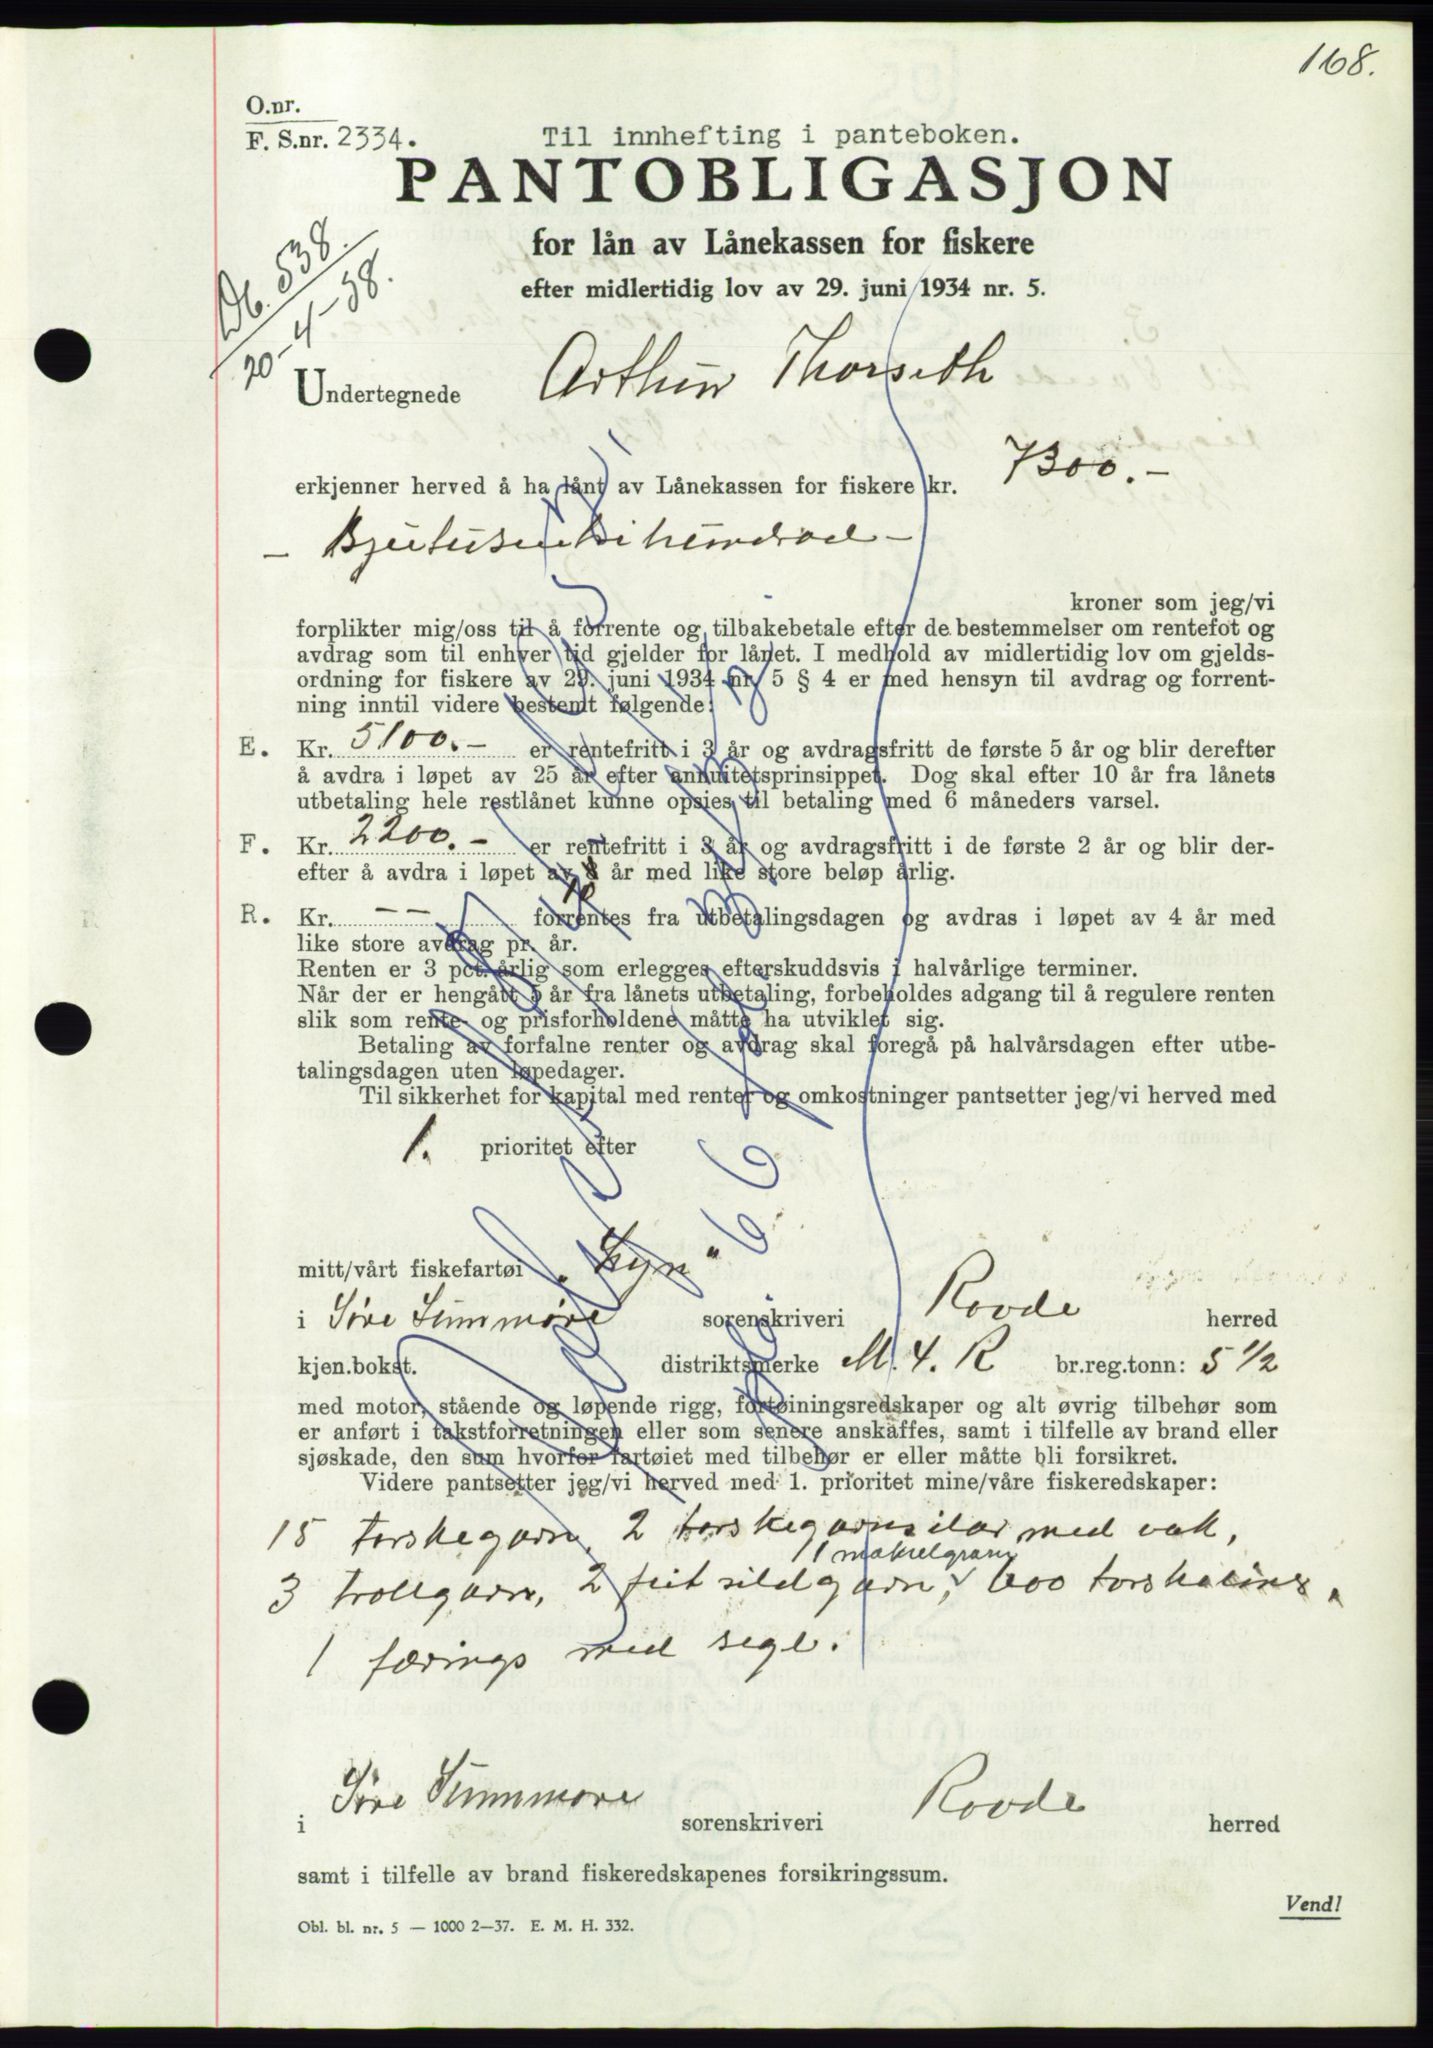 168.
O.nr.
F. S.nr. 2334.
Til innhefting i panteboken.
PANTOBLIGASJON
for lån av Lånekassen for fiskere
efter midlertidig lov av 29. juni 1934 nr. 5.
Db. 538.
20-4-38.
Undertegnede Arthur Thorseth
erkjenner herved å ha lånt av Lånekassen for fiskere kr. 7300.-
kroner som jeg/vi
forplikter mig/oss til å forrente og tilbakebetale efter de bestemmelser om rentefot og
avdrag som til enhver tid gjelder for lånet. I medhold av midlertidig lov om gjelds-
ordning for fiskere av 29. juni 1934 nr. 5 § 4 er med hensyn til avdrag og forrent-
ning inntil videre bestemt følgende:
E. Kr. 5100.- er rentefritt i 3 år og avdragsfritt de første 5 år og blir derefter
å avdra i løpet av 25 år efter annuitetsprinsippet. Dog skal efter 10 år fra lånets
utbetaling hele restlånet kunne opsies til betaling med 6 måneders varsel.
F. Kr. 2200.- er rentefritt i 3 år og avdragsfritt i de første 2 år og blir der-
efter å avdra i løpet av 8 år med like store beløp årlig.
10
R. Kr. -- forrentes fra utbetalingsdagen og avdras i løpet av 4 år med
like store avdrag pr. år.
Renten er 3 pct. årlig som erlegges efterskuddsvis i halvårlige terminer.
Når der er hengått 5 år fra lånets utbetaling, forbeholdes adgang til å regulere renten
slik som rente- og prisforholdene måtte ha utviklet sig.
Betaling av forfalne renter og avdrag skal foregå på halvårsdagen efter utbe-
talingsdagen uten løpedager.
Til sikkerhet for kapital med renter og omkostninger pantsetter jeg/vi herved med
1. prioritet efter
mitt/vårt fiskefartøi „Lyn"
i Søre Sunnmøre sorenskriveri Rovde herred
kjen.bokst. distriktsmerke M. 4. R br.reg.tonn: 5 1/2
med motor, stående og løpende rigg, fortøiningsredskaper og alt øvrig tilbehør som
er anført i takstforretningen eller som senere anskaffes, samt i tilfelle av brand eller
sjøskade, den sum hvorfor fartøiet med tilbehør er eller måtte bli forsikret.
Videre pantsetter jeg/vi herved med 1. prioritet mine/våre fiskeredskaper:
15 torskegarn, 2 torskegarnsilar med vak,
1 makrelgarn
3 trollgarn, 2 feitsildgarn, 600 torskeline,
1 færings med segl.
i Søre Sunnmøre sorenskriveri Rovde herred
samt i tilfelle av brand fiskeredskapenes forsikringssum.
Vend!
Obl. bl. nr. 5 — 1000 2—37. E. M. H. 332.